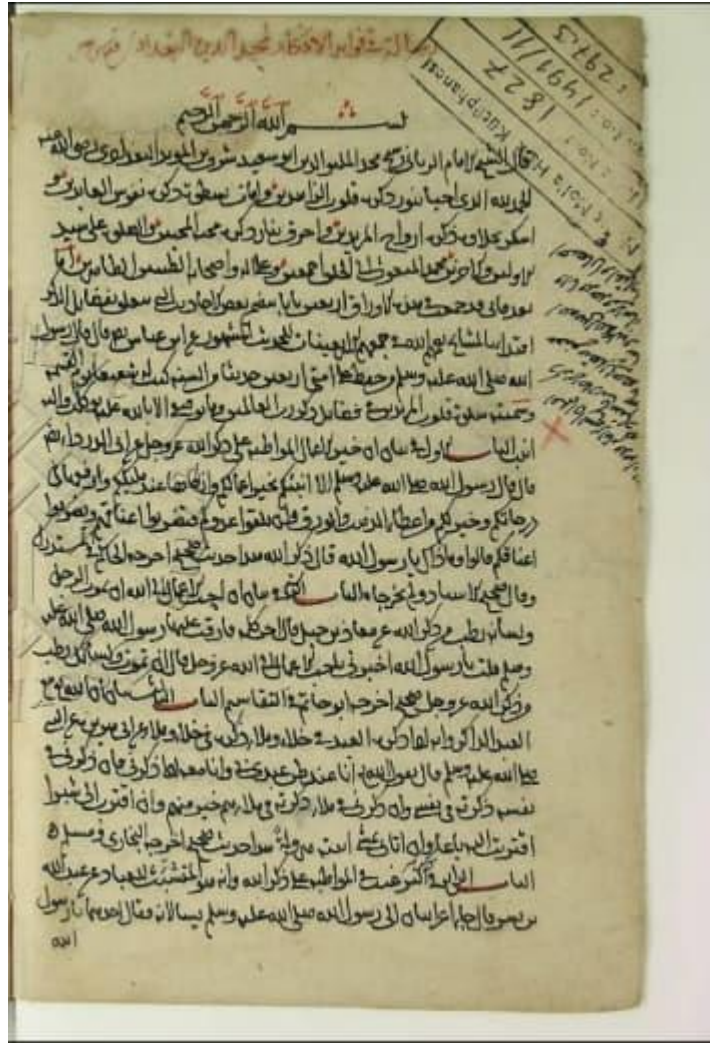 رسالة في فوايد الاذكار لمجد الدين البغدادي
Molla H. Kütüphanesi
1827
1491/11
297.3
بسم الله الرحمن الرحيم
قال الشيخ الامام الرباني مجد الملة والدين ابو سعيد شرف بن المويد البغدادي رضي الله عنه
الحمد لله الذي احيا بنور ذكره قلوب الذاكرين وامات بسطوة ذكره نفوس العابدين و
اسكر بحلاوة ذكره ارواح المريدين واحرق بنار ذكره المحبين والصلوة على سيد
الاولين والاخرين محمد المبعوث الى الخلق اجمعين وعلى اله واصحابه الطيبين الطاهرين اما
بعد فاني قد جمعت في هذه الاوراق اربعين بابا بعض الاحاديث التي تتعلق بفضايل الذكر
اقتداء بالمشايخ رحمهم الله في جمعهم الاربعينات للحديث المشهور عن ابن عباس قال قال رسول
الله صلى الله عليه وسلم من حفظ على امتي اربعين حديثا من السنة كنت له شفيعا يوم القيمة
وسميته قلوب المريدين في فضايل ذكر رب العالمين وما توفيقي الا بالله عليه توكلت واليه
انيب الباب الاول في بيان ان خير الاعمال المواظبة على ذكر الله عز وجل عن ابي الدرداء
قال قال رسول الله صلى الله عليه وسلم الا انبئكم بخير اعمالكم وازكاها عند مليككم وارفعها في
درجاتكم وخير لكم من اعطاء الذهب والورق وان تلقوا عدوكم فتضربوا اعناقهم ويضربوا
اعناقكم قالوا وما ذاك يا رسول الله قال ذكر الله هذا حديث صحيح اخرجه الحاكم في المستدرك
وقال صحيح الاسناد ولم يخرجاه الباب الثاني في بيان ان احب الاعمال الى الله ان يموت الرجل
ولسانه رطب من ذكر الله عن معاذ بن جبل قال اخر كلام فارقت عليه رسول الله صلى الله عليه
وسلم قلت يا رسول الله اخبرني باحب الاعمال الى الله عز وجل قال ان تموت ولسانك رطب
من ذكر الله عز وجل صحيح اخرجه ابو حاتم في التقاسيم الباب الثالث في بيان ان الله مع
العبد الذاكر وانه اذا ذكره العبد في خلاء وملاء ذكره في خلاء وملاء عن ابي هريرة عن النبي
صلى الله عليه وسلم قال يقول الله انا عند ظن عبدي بي وانا معه اذا ذكرني فان ذكرني في
نفسه ذكرته في نفسي وان ذكرني في ملاء ذكرته في ملاء هم خير منهم وان اقترب الي شبرا
اقتربت اليه باعا وان اتاني يمشي اتيته هرولة هذا حديث صحيح اخرجه البخاري ومسلم
الباب الرابع في المواظبة على ذكر الله وانه هو المتشبث للعباد عن عبد الله
بن بسر قال جاء اعرابيان الى رسول الله صلى الله عليه وسلم يسالانه فقال احدهما يا رسول
الله